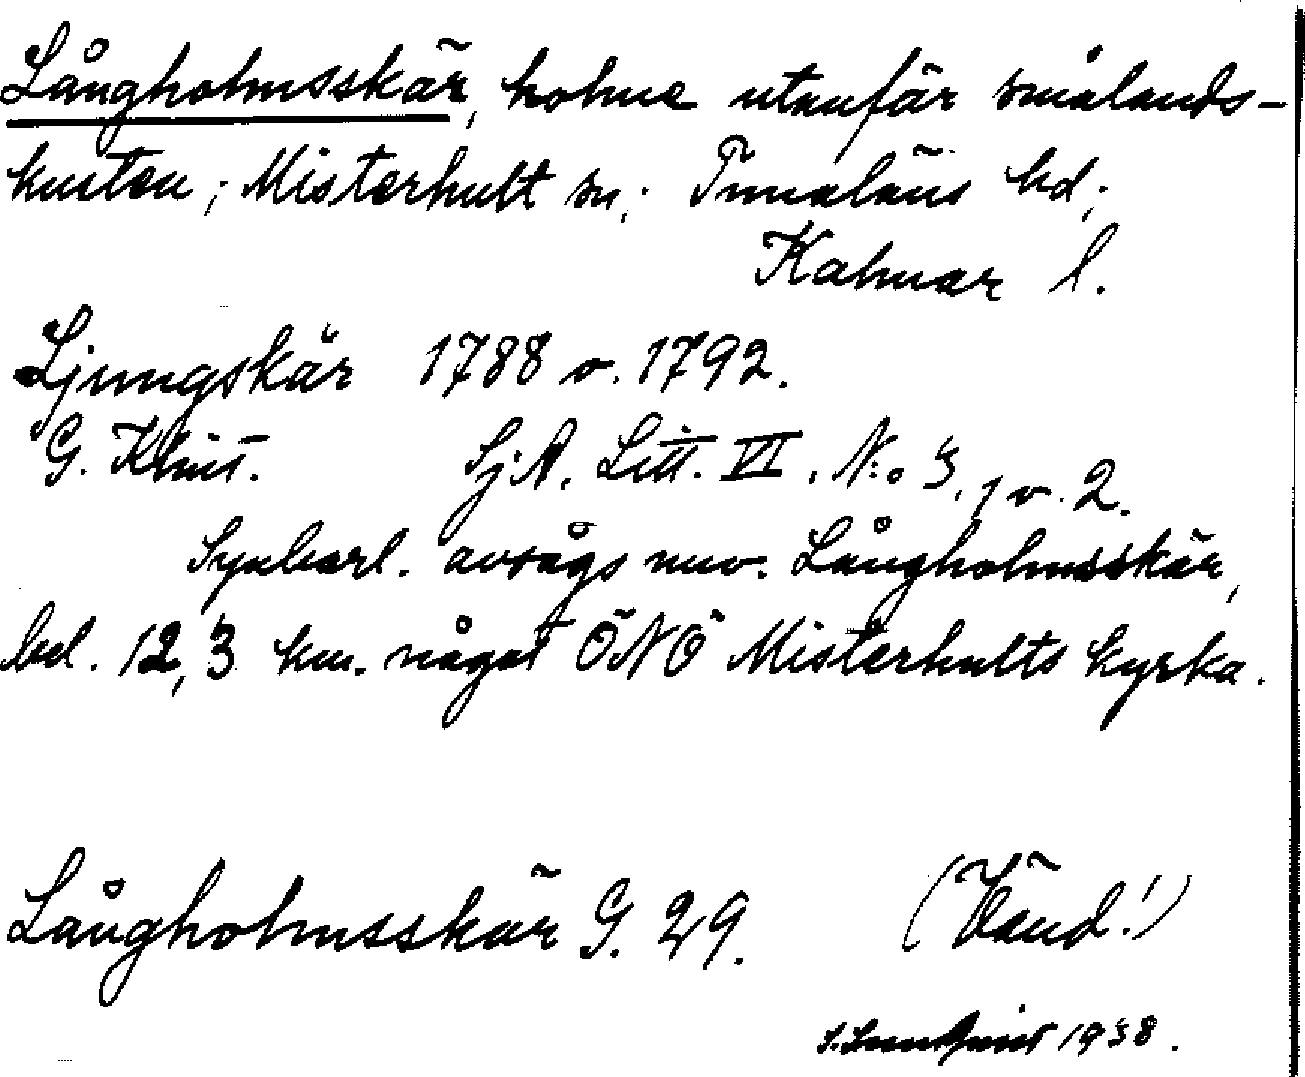 Långholmsskär, holme utanför smålands-
kusten; Misterhult sn; Tunaläns hd;
Kalmar l.
Ljungskär 1788 o. 1792.
G. Klint. Sj.A. Litt. VI. N:o 3, 1 o. 2.
Synbarl. avsågs nuv. Långholmsskär,
bel. 12,3 km. något ÖNÖ Misterhults kyrka.
Långholmsskär G. 29. (Vänd!)
1938.